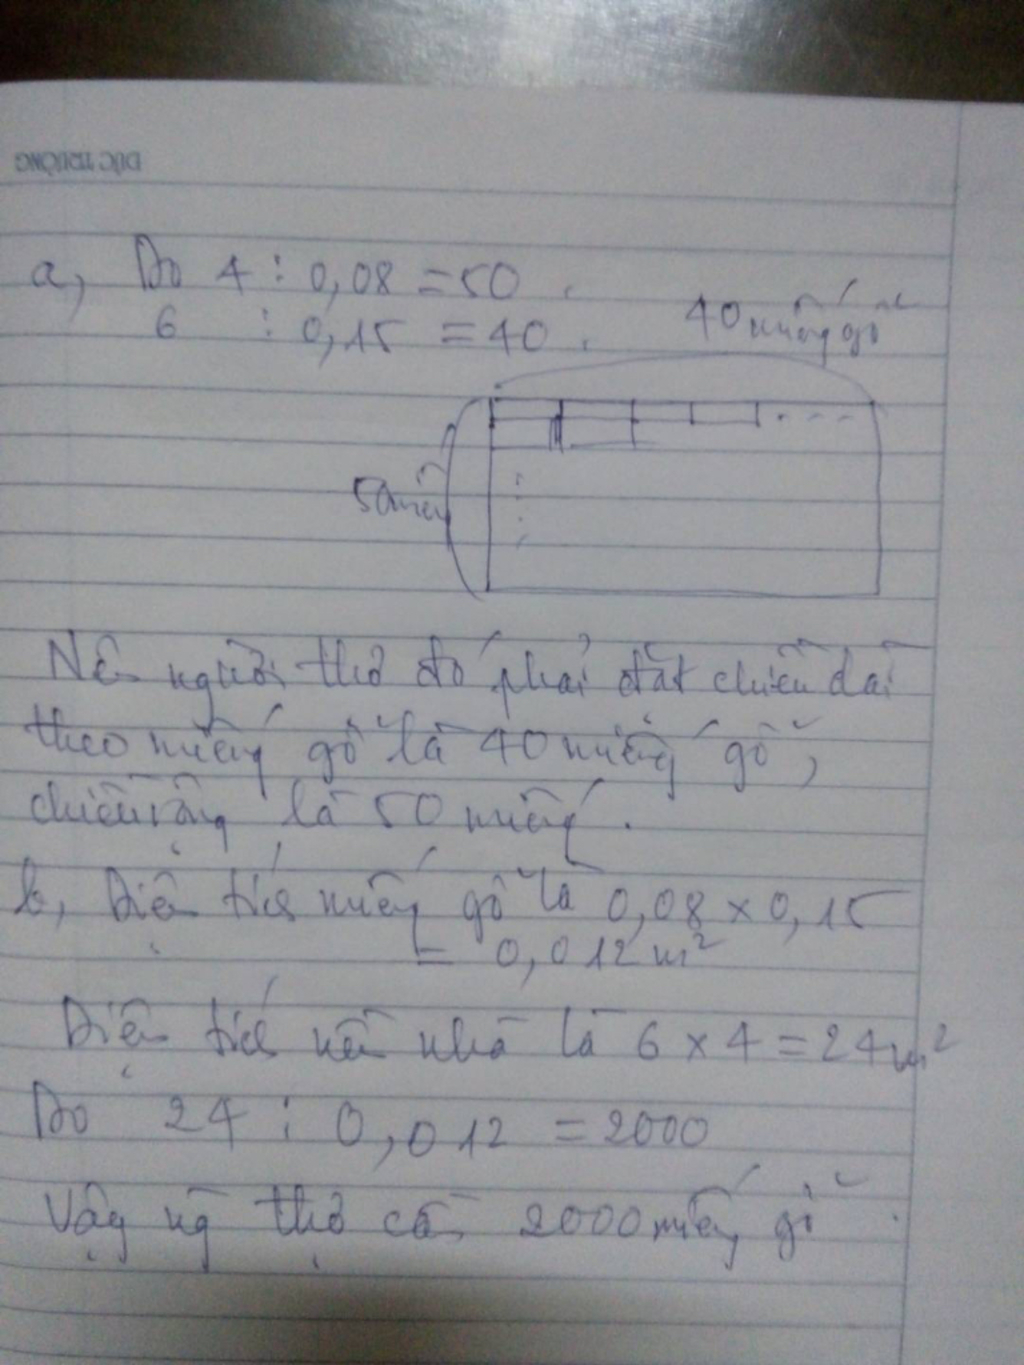 ĐỨC TRƯỜNG
a, Do 4 : 0,08 = 50.
6 : 0,15 = 40.
40 miếng gỗ
50 miếng
Nên người thợ đó phải đặt chiều dài
theo miếng gỗ là 40 miếng gỗ,
chiều rộng là 50 miếng.
b, Diện tích miếng gỗ là 0,08 x 0,15
= 0,012 m²
Diện tích nền nhà là 6 x 4 = 24 m²
Do 24 : 0,012 = 2000
Vậy ng thợ cần 2000 miếng gỗ.